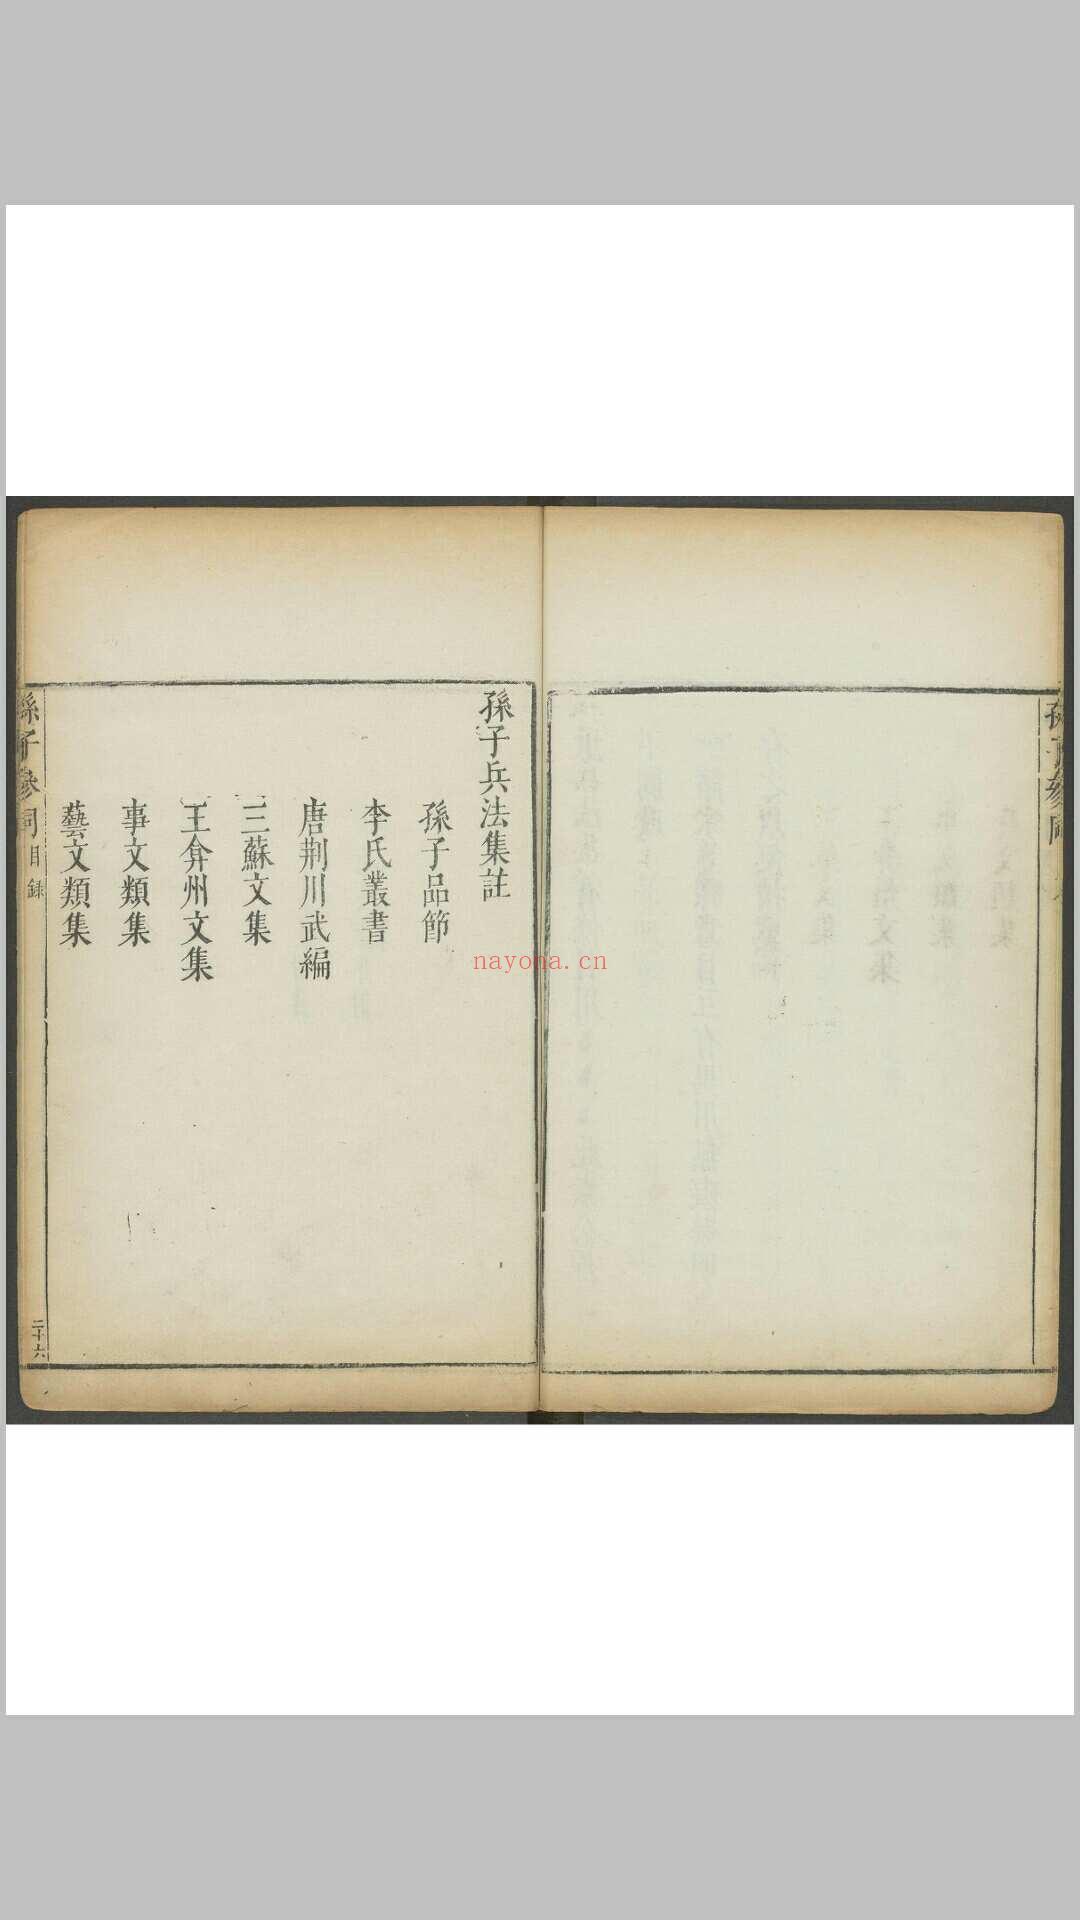 孫子兵法集註
孫子品節
李氏叢書
唐荆川武編
三蘇文集
王弇州文集
事文類集
藝文類集
孫子參同
目録
二十六
nayona.cn